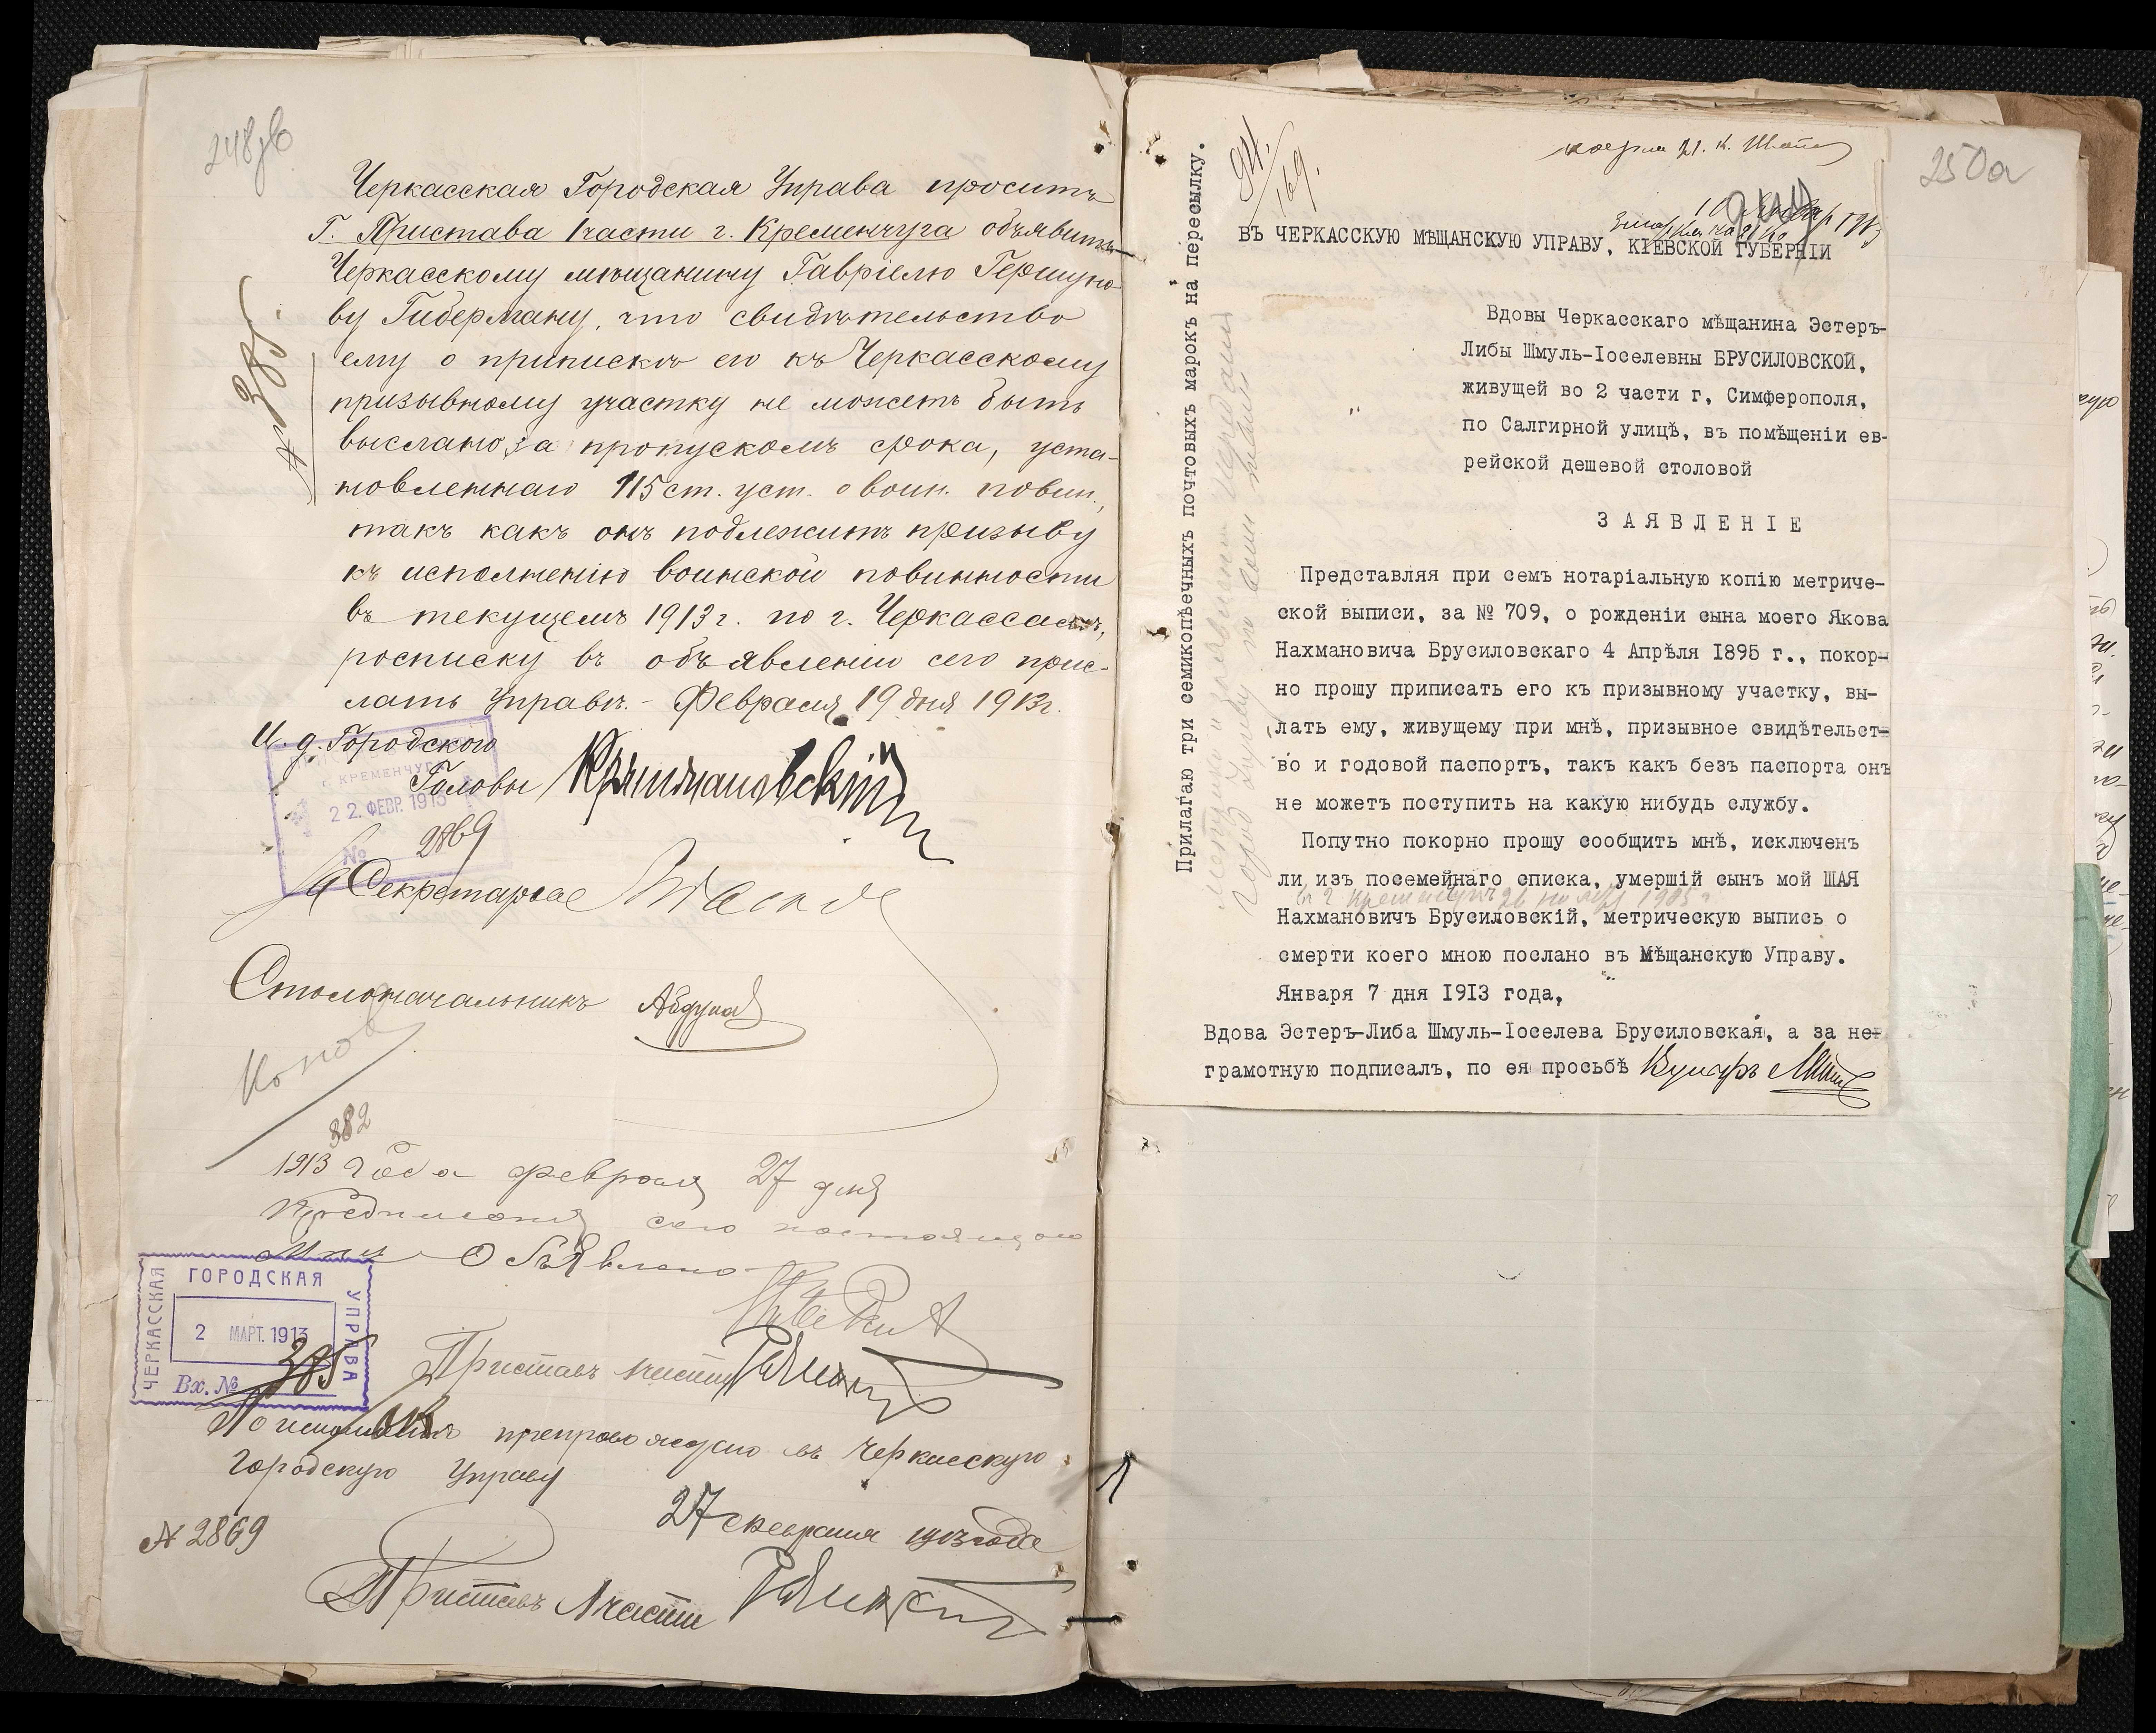 Черкасская Городская Управа проситъ
Г. Пристава 1 части г. Кременчуга объявить
Черкасскому мѣщанину Гавріелю Гершуно-
ву Гиберману, что свидѣтельство
ему о припискѣ его къ Черкасскому
призывному участку не можетъ быть
выслано, за пропускомъ срока, уста-
новленнаго 115 ст. уст. о воин. повин.,
такъ какъ онъ подлежитъ призыву
къ исполненію воинской повинности
въ текущемъ 1913 г. по г. Черкассамъ,
росписку въ объявленіи сего прис-
лать Управѣ. - Февраля 19 дня 1913 г.
И. д. Городского
Головы
Г. КРЕМЕНЧУГ
22 ФЕВР. 1913
№ 2869
За Секретаря
Столоначальникъ
382
1913 года февраля 27 дня
сего настоящого
Мнѣ Объявлено
ЧЕРКАССКАЯ ГОРОДСКАЯ УПРАВА
2 МАРТ. 1913
Вх. № 385
Приставъ 1 части
По исполненіи препровождено въ Черкасскую
Городскую Управу
27 февраля 1913 года
№ 2869
Приставъ 1 части
№ 385.
250а
84/169.
ВЪ ЧЕРКАССКУЮ МѢЩАНСКУЮ УПРАВУ, КІЕВСКОЙ ГУБЕРНІИ
Вдовы Черкасскаго мѣщанина Эстеръ-
Либы Шмуль-Іоселевны БРУСИЛОВСКОЙ,
живущей во 2 части г, Симферополя,
по Салгирной улицѣ, въ помѣщеніи ев-
рейской дешевой столовой
ЗАЯВЛЕНІЕ
Представляя при семъ нотаріальную копію метриче-
ской выписи, за № 709, о рожденіи сына моего Якова
Нахмановича Брусиловскаго 4 Апрѣля 1895 г., покор-
но прошу приписать его къ призывному участку, вы-
лать ему, живущему при мнѣ, призывное свидѣтельст-
во и годовой паспортъ, такъ какъ безъ паспорта онъ
не можетъ поступить на какую нибудь службу.
Попутно покорно прошу сообщить мнѣ, исключенъ
ли изъ посемейнаго списка, умершій сынъ мой ШАЯ
Нахмановичъ Брусиловскій, метрическую выпись о
смерти коего мною послано въ Мѣщанскую Управу.
Января 7 дня 1913 года,
Вдова Эстеръ-Либа Шмуль-Іоселева Брусиловская, а за не-
грамотную подписалъ, по ея просьбѣ
Прилагаю три семикопѣечныхъ почтовыхъ марокъ на пересылку.